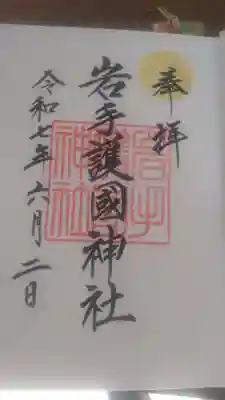 奉拝
岩手護國神社
令和七年六月二日